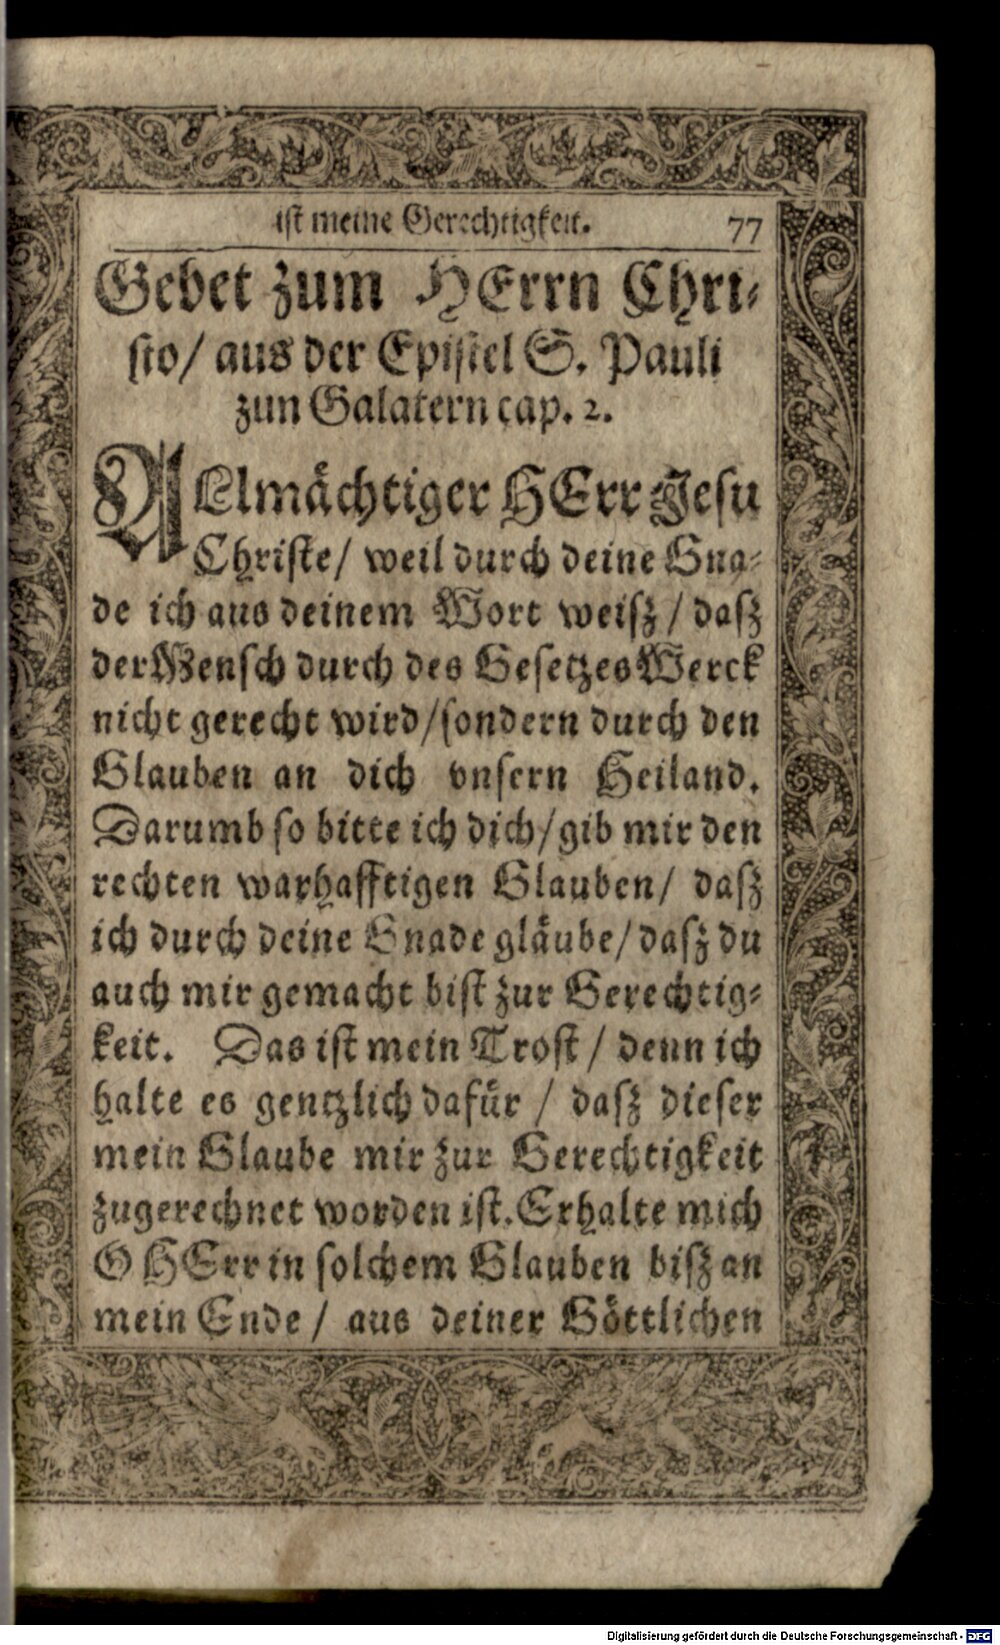 ist meine Gerechtigkeit. 77
Gebet zum HErrn Chri-
sto/ aus der Epistel S. Pauli
zun Galatern cap. 2.
ALlmächtiger HErr Jesu
Christe/ weil durch deine Gna-
de ich aus deinem Wort weisz/ dasz
der Mensch durch des Gesetzes Werck
nicht gerecht wird/ sondern durch den
Glauben an dich vnsern Heiland.
Darumb so bitte ich dich/ gib mir den
rechten warhafftigen Glauben/ dasz
ich durch deine Gnade gläube/ dasz du
auch mir gemacht bist zur Gerechtig-
keit. Das ist mein Trost/ denn ich
halte es gentzlich dafür/ dasz dieser
mein Glaube mir zur Gerechtigkeit
zugerechnet worden ist. Erhalte mich
O HErr in solchem Glauben bisz an
mein Ende/ aus deiner Göttlichen
Digitalisierung gefördert durch die Deutsche Forschungsgemeinschaft - DFG